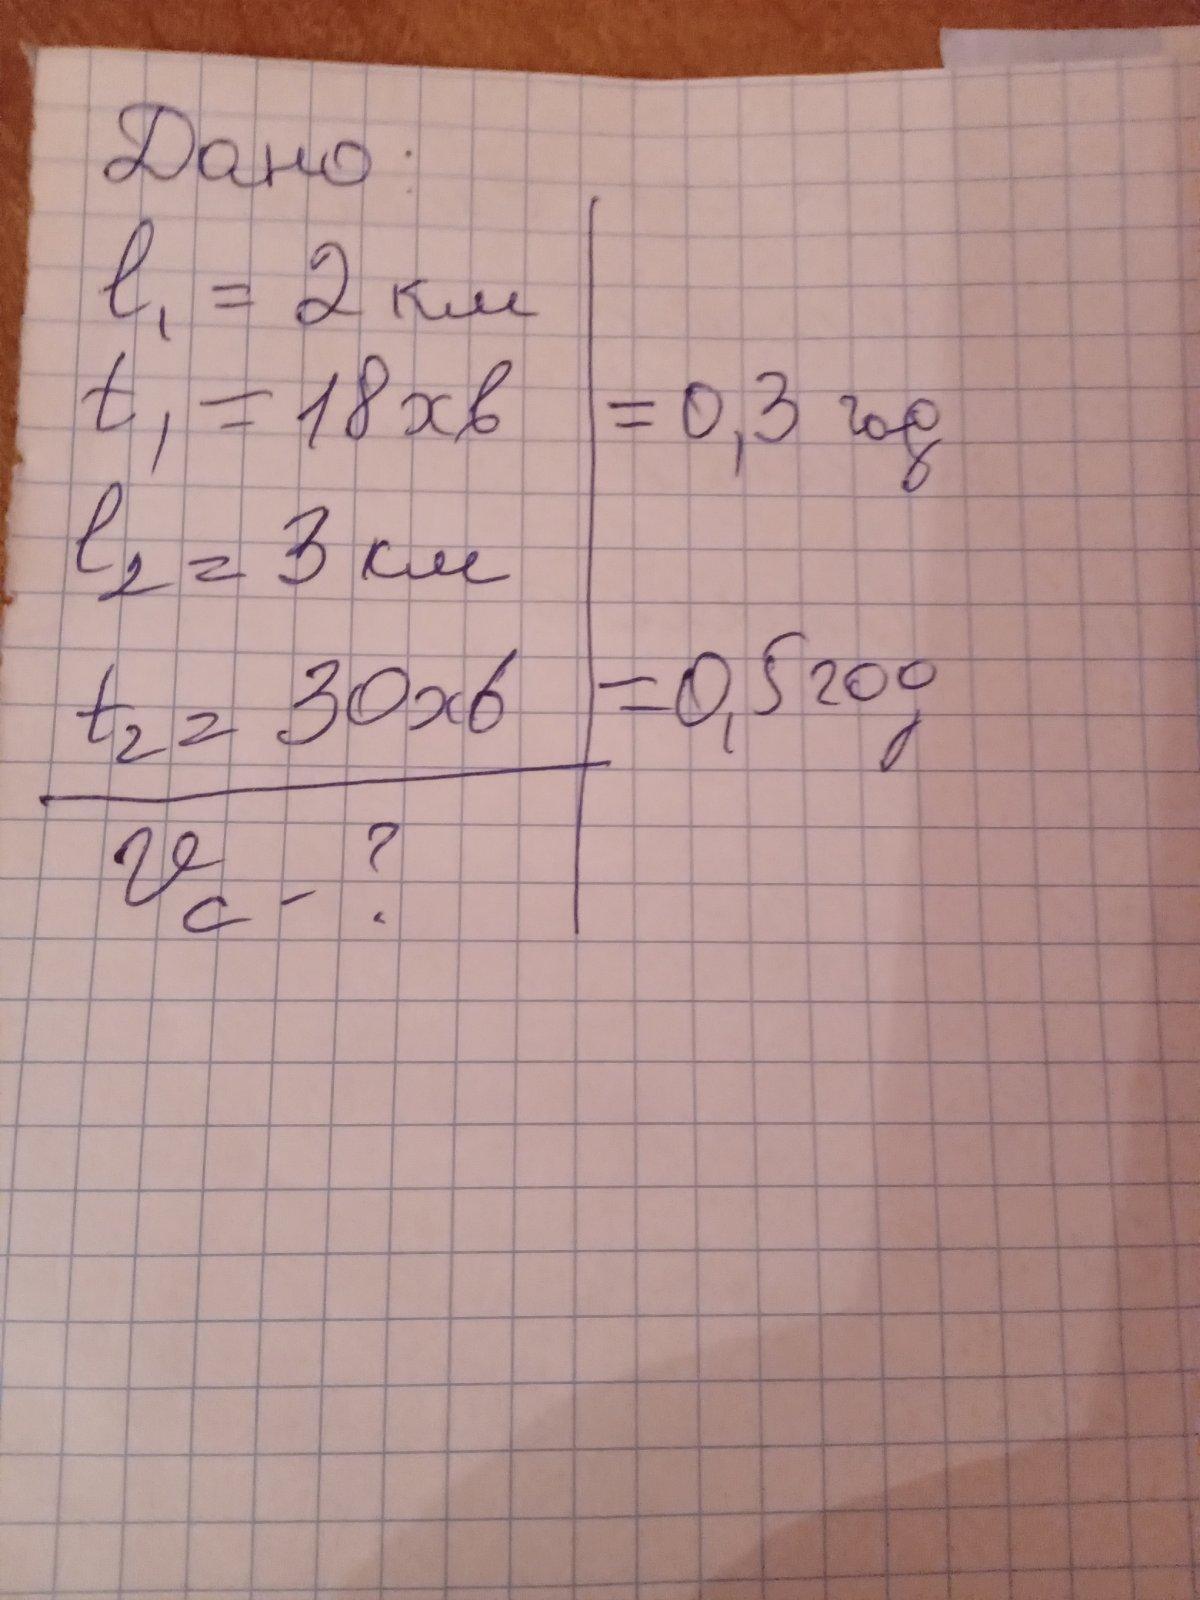 Дано:
l₁ = 2 км
t₁ = 18 хв = 0,3 год
l₂ = 3 км
t₂ = 30 хв = 0,5 год
υc - ?